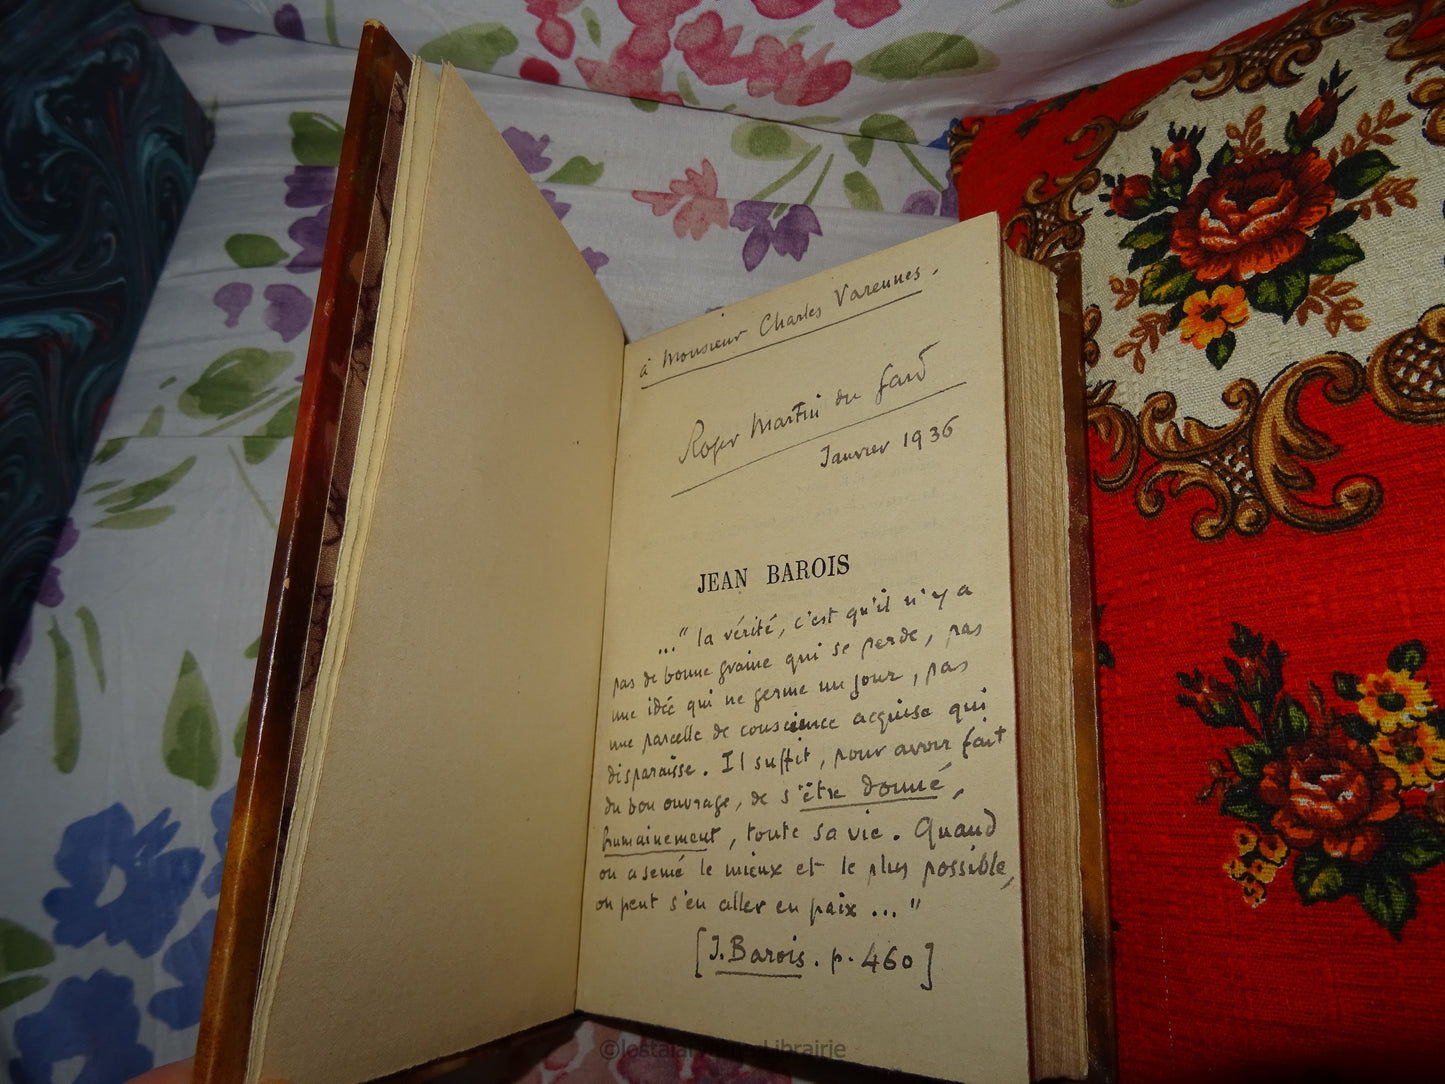 à Monsieur Charles Varennes.
Roger Martin du Gard
Janvier 1936
JEAN BAROIS
..." la vérité, c'est qu'il n'y a
pas de bonne graine qui se perde, pas
une idée qui ne germe un jour, pas
une parcelle de conscience acquise qui
disparaisse. Il suffit, pour avoir fait
du bon ouvrage, de s'être donné,
humainement, toute sa vie. Quand
on a semé le mieux et le plus possible,
on peut s'en aller en paix ..."
[J. Barois. p. 460]